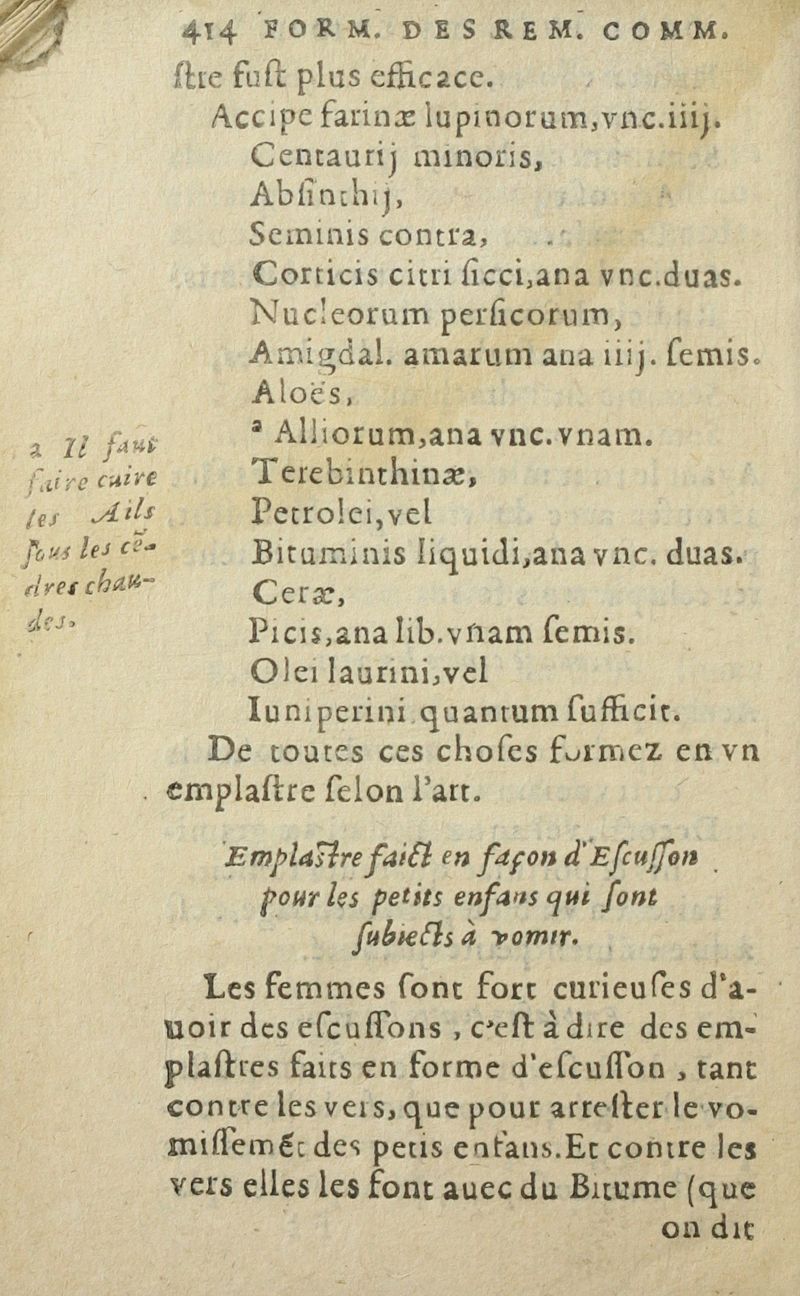 414 FORM. DES REM. COMM.
ſtre fuſt plus efficace.
Accipe farinæ lupinorum,vnc.iiij.
Centaurij minoris,
Abſinthij,
Seminis contra,
Corticis citri ſicci,ana vnc.duas.
Nucleorum perſicorum,
Amigdal. amarum ana iiij. ſemis.
Aloës,
ª Alliorum,ana vnc.vnam.
Terebinthinæ,
Petrolei,vel
Bituminis liquidi,ana vnc. duas.
Ceræ,
Picis,ana lib.vnam ſemis.
Olei laurini,vel
Iuniperini quantum ſufficit.
De toutes ces choſes formez en vn
emplaſtre ſelon l'art.
a Il faut
faire cuire
les Ails
ſous les cē-
dres chau-
des.
Emplaſtre faict en façon d'Eſcuſſon
pour les petits enfans qui ſont
ſubiects à vomir.
Les femmes ſont fort curieuſes d'a-
uoir des eſcuſſons , c'eſt à dire des em-
plaſtres faits en forme d'eſcuſſon , tant
contre les vers, que pour arreſter le vo-
miſſemẽt des petis enfans.Et contre les
vers elles les font auec du Bitume (que
on dit